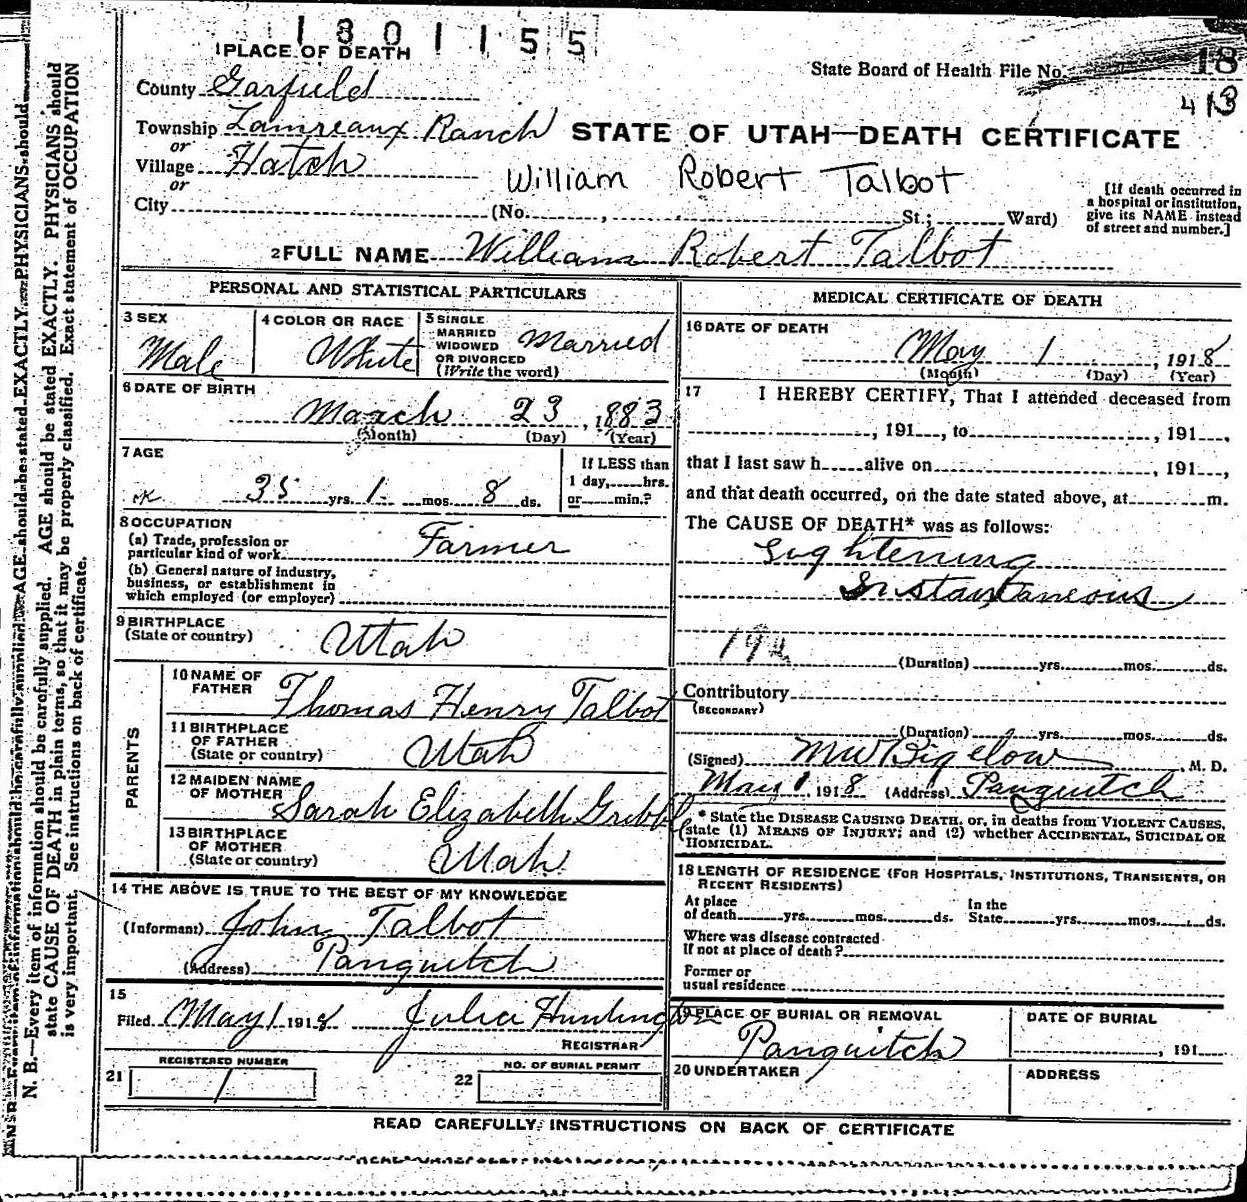 1301155
1 PLACE OF DEATH
State Board of Health File No. 18
413
County Garfield
Township Lamreaux Ranch
STATE OF UTAH—DEATH CERTIFICATE
or
Village Hatch
or
William Robert Talbot
City (No. , St.; Ward)
[If death occurred in
a hospital or institution,
give its NAME instead
of street and number.]
2 FULL NAME William Robert Talbot
PERSONAL AND STATISTICAL PARTICULARS
3 SEX
Male
4 COLOR OR RACE
White
5 SINGLE
MARRIED
WIDOWED
OR DIVORCED
(Write the word)
Married
6 DATE OF BIRTH
March 23, 1883
(Month) (Day) (Year)
7 AGE
If LESS than
1 day, hrs.
or min.?
OK 35 yrs. 1 mos. 8 ds.
8 OCCUPATION
(a) Trade, profession or
particular kind of work Farmer
(b) General nature of industry,
business, or establishment in
which employed (or employer)
9 BIRTHPLACE
(State or country) Utah
PARENTS
10 NAME OF
FATHER Thomas Henry Talbot
11 BIRTHPLACE
OF FATHER
(State or country) Utah
12 MAIDEN NAME
OF MOTHER Sarah Elizabeth Gribble
13 BIRTHPLACE
OF MOTHER
(State or country) Utah
14 THE ABOVE IS TRUE TO THE BEST OF MY KNOWLEDGE
(Informant) John Talbot
(Address) Panguitch
15
Filed May 1 1918 Julia Huntington
REGISTRAR
REGISTERED NUMBER
21
NO. OF BURIAL PERMIT
22
MEDICAL CERTIFICATE OF DEATH
16 DATE OF DEATH
May 1, 1918
(Month) (Day) (Year)
17 I HEREBY CERTIFY, That I attended deceased from
, 191 , to , 191 ,
that I last saw h alive on , 191 ,
and that death occurred, on the date stated above, at m.
The CAUSE OF DEATH* was as follows:
Lightening
Instantaneous
192
(Duration) yrs. mos. ds.
Contributory
(SECONDARY)
(Duration) yrs. mos. ds.
(Signed) MW Bigelow, M. D.
May 1, 1918 (Address) Panguitch
* State the DISEASE CAUSING DEATH, or, in deaths from VIOLENT CAUSES,
state (1) MEANS OF INJURY; and (2) whether ACCIDENTAL, SUICIDAL OR
HOMICIDAL.
18 LENGTH OF RESIDENCE (FOR HOSPITALS, INSTITUTIONS, TRANSIENTS, OR
RECENT RESIDENTS)
At place
of death yrs. mos. ds.
In the
State yrs. mos. ds.
Where was disease contracted
If not at place of death?
Former or
usual residence
19 PLACE OF BURIAL OR REMOVAL
Panguitch
DATE OF BURIAL
, 191
20 UNDERTAKER
ADDRESS
READ CAREFULLY INSTRUCTIONS ON BACK OF CERTIFICATE
N. B.—Every item of information should be carefully supplied. AGE should be stated EXACTLY. PHYSICIANS should
state CAUSE OF DEATH in plain terms, so that it may be properly classified. Exact statement of OCCUPATION
is very important. See instructions on back of certificate.